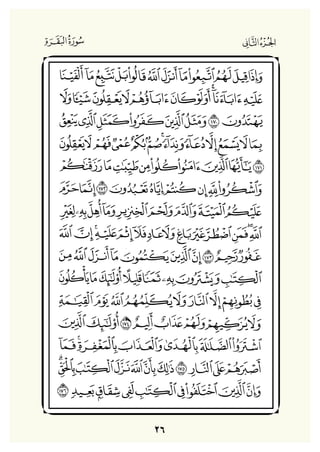 الجزء الثاني سورة البقرة
وإذا قيل لهم اتبعوا ما أنزل الله قالوا بل نتبع ما ألفينا
عليه ءاباءنا أولو كان ءاباؤهم لا يعقلون شيئا ولا
يهتدون ١٧٠ ومثل الذين كفروا كمثل الذي ينعق
بما لا يسمع إلا دعاء ونداء صم بكم عمي فهم لا يعقلون
١٧١ يأيها الذين ءامنوا كلوا من طيبت ما رزقنكم
واشكروا لله إن كنتم إياه تعبدون ١٧٢ إنما حرم
عليكم الميتة والدم ولحم الخنزير وما أهل به لغير
الله فمن اضطر غير باغ ولا عاد فلا إثم عليه إن الله
غفور رحيم ١٧٣ إن الذين يكتمون ما أنزل الله من
الكتب ويشترون به ثمنا قليلا أولئك ما يأكلون
في بطونهم إلا النار ولا يكلمهم الله يوم القيمة
ولا يزكيهم ولهم عذاب أليم ١٧٤ أولئك الذين
اشتروا الضللة بالهدى والعذاب بالمغفرة فما
أصبرهم على النار ١٧٥ ذلك بأن الله نزل الكتب بالحق
وإن الذين اختلفوا في الكتب لفي شقاق بعيد ١٧٦
٢٦